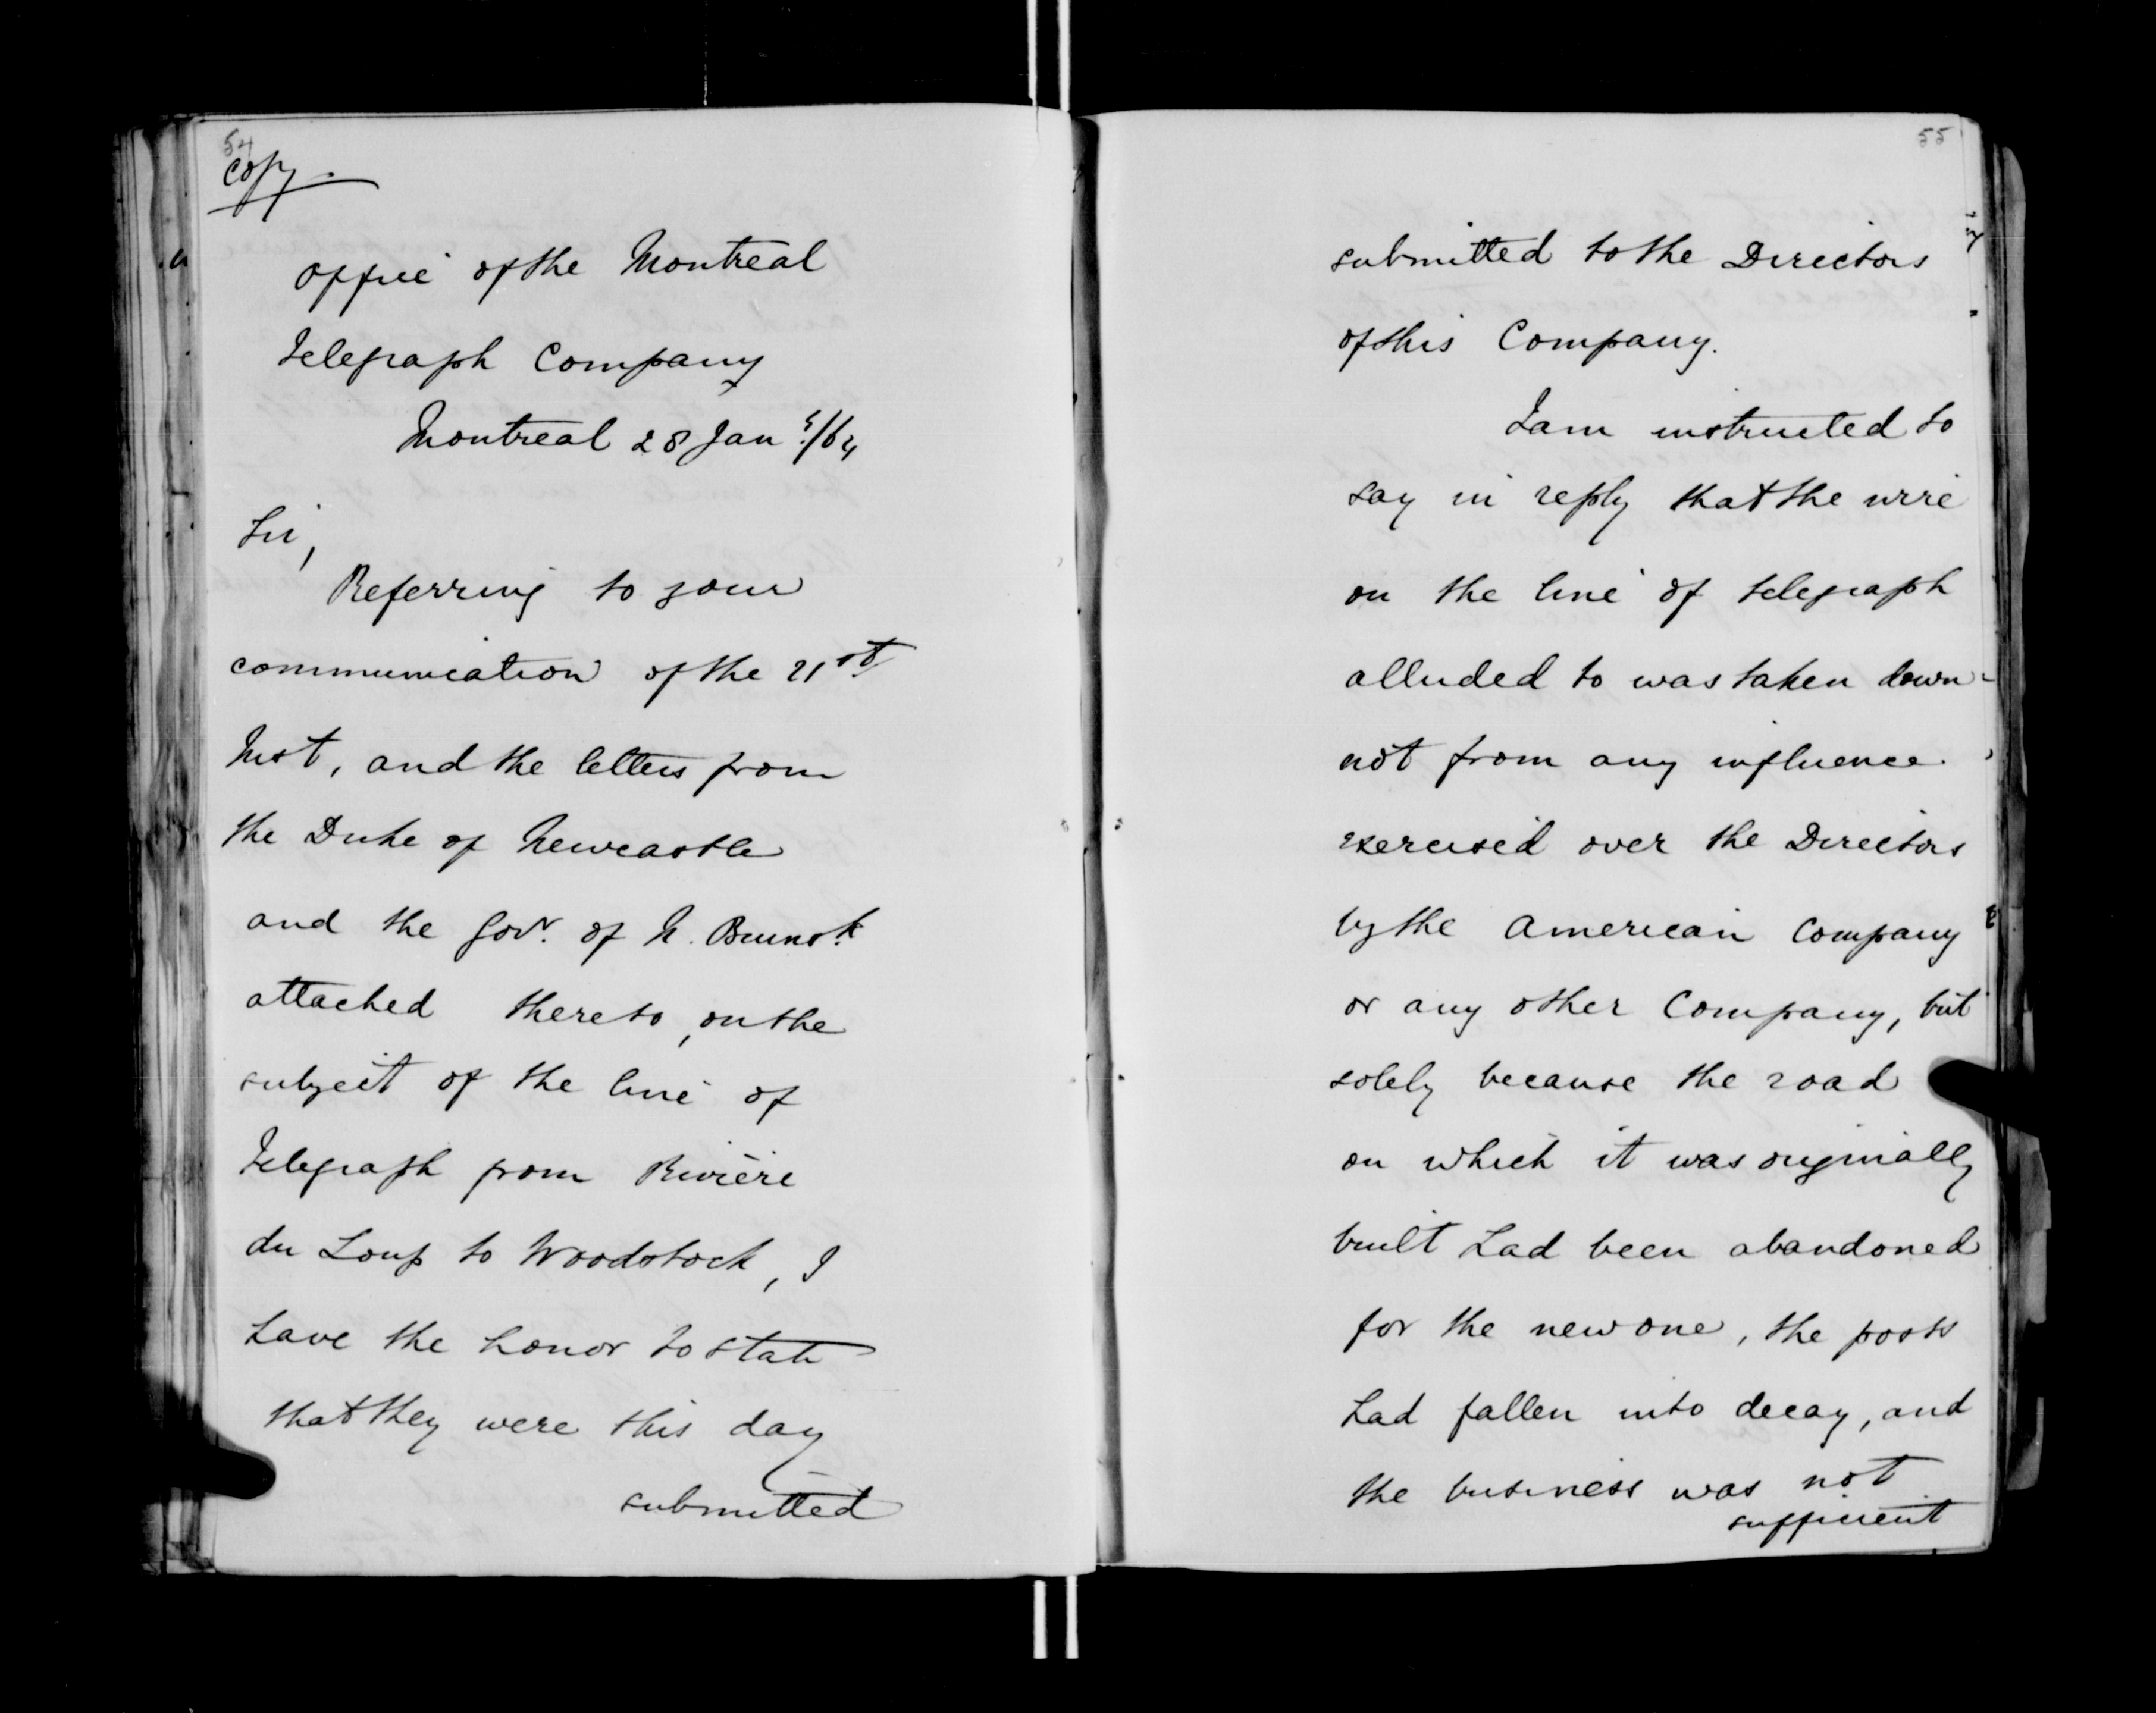 54
Copy.
Office of the Montreal
Telegraph Company
Montreal 28 Jany./64
Sir,
Referring to your
communication of the 21st
Inst, and the letters from
the Duke of Newcastle
and the Govr. of N. Brunsk.
attached thereto, on the
subject of the line of
Telegraph from Rivière
du Loup to Woodstock, I
have the honor to state
that they were this day
submitted
55
submitted to the Directors
of this Company.
I am instructed to
say in reply that the wire
on the line of telegraph
alluded to was taken down-
not from any influence
exercised over the Directors
by the American Company
or any other Company, but
solely because the road
on which it was originally
built had been abandoned
for the new one, the posts
had fallen into decay, and
the business was not
sufficient